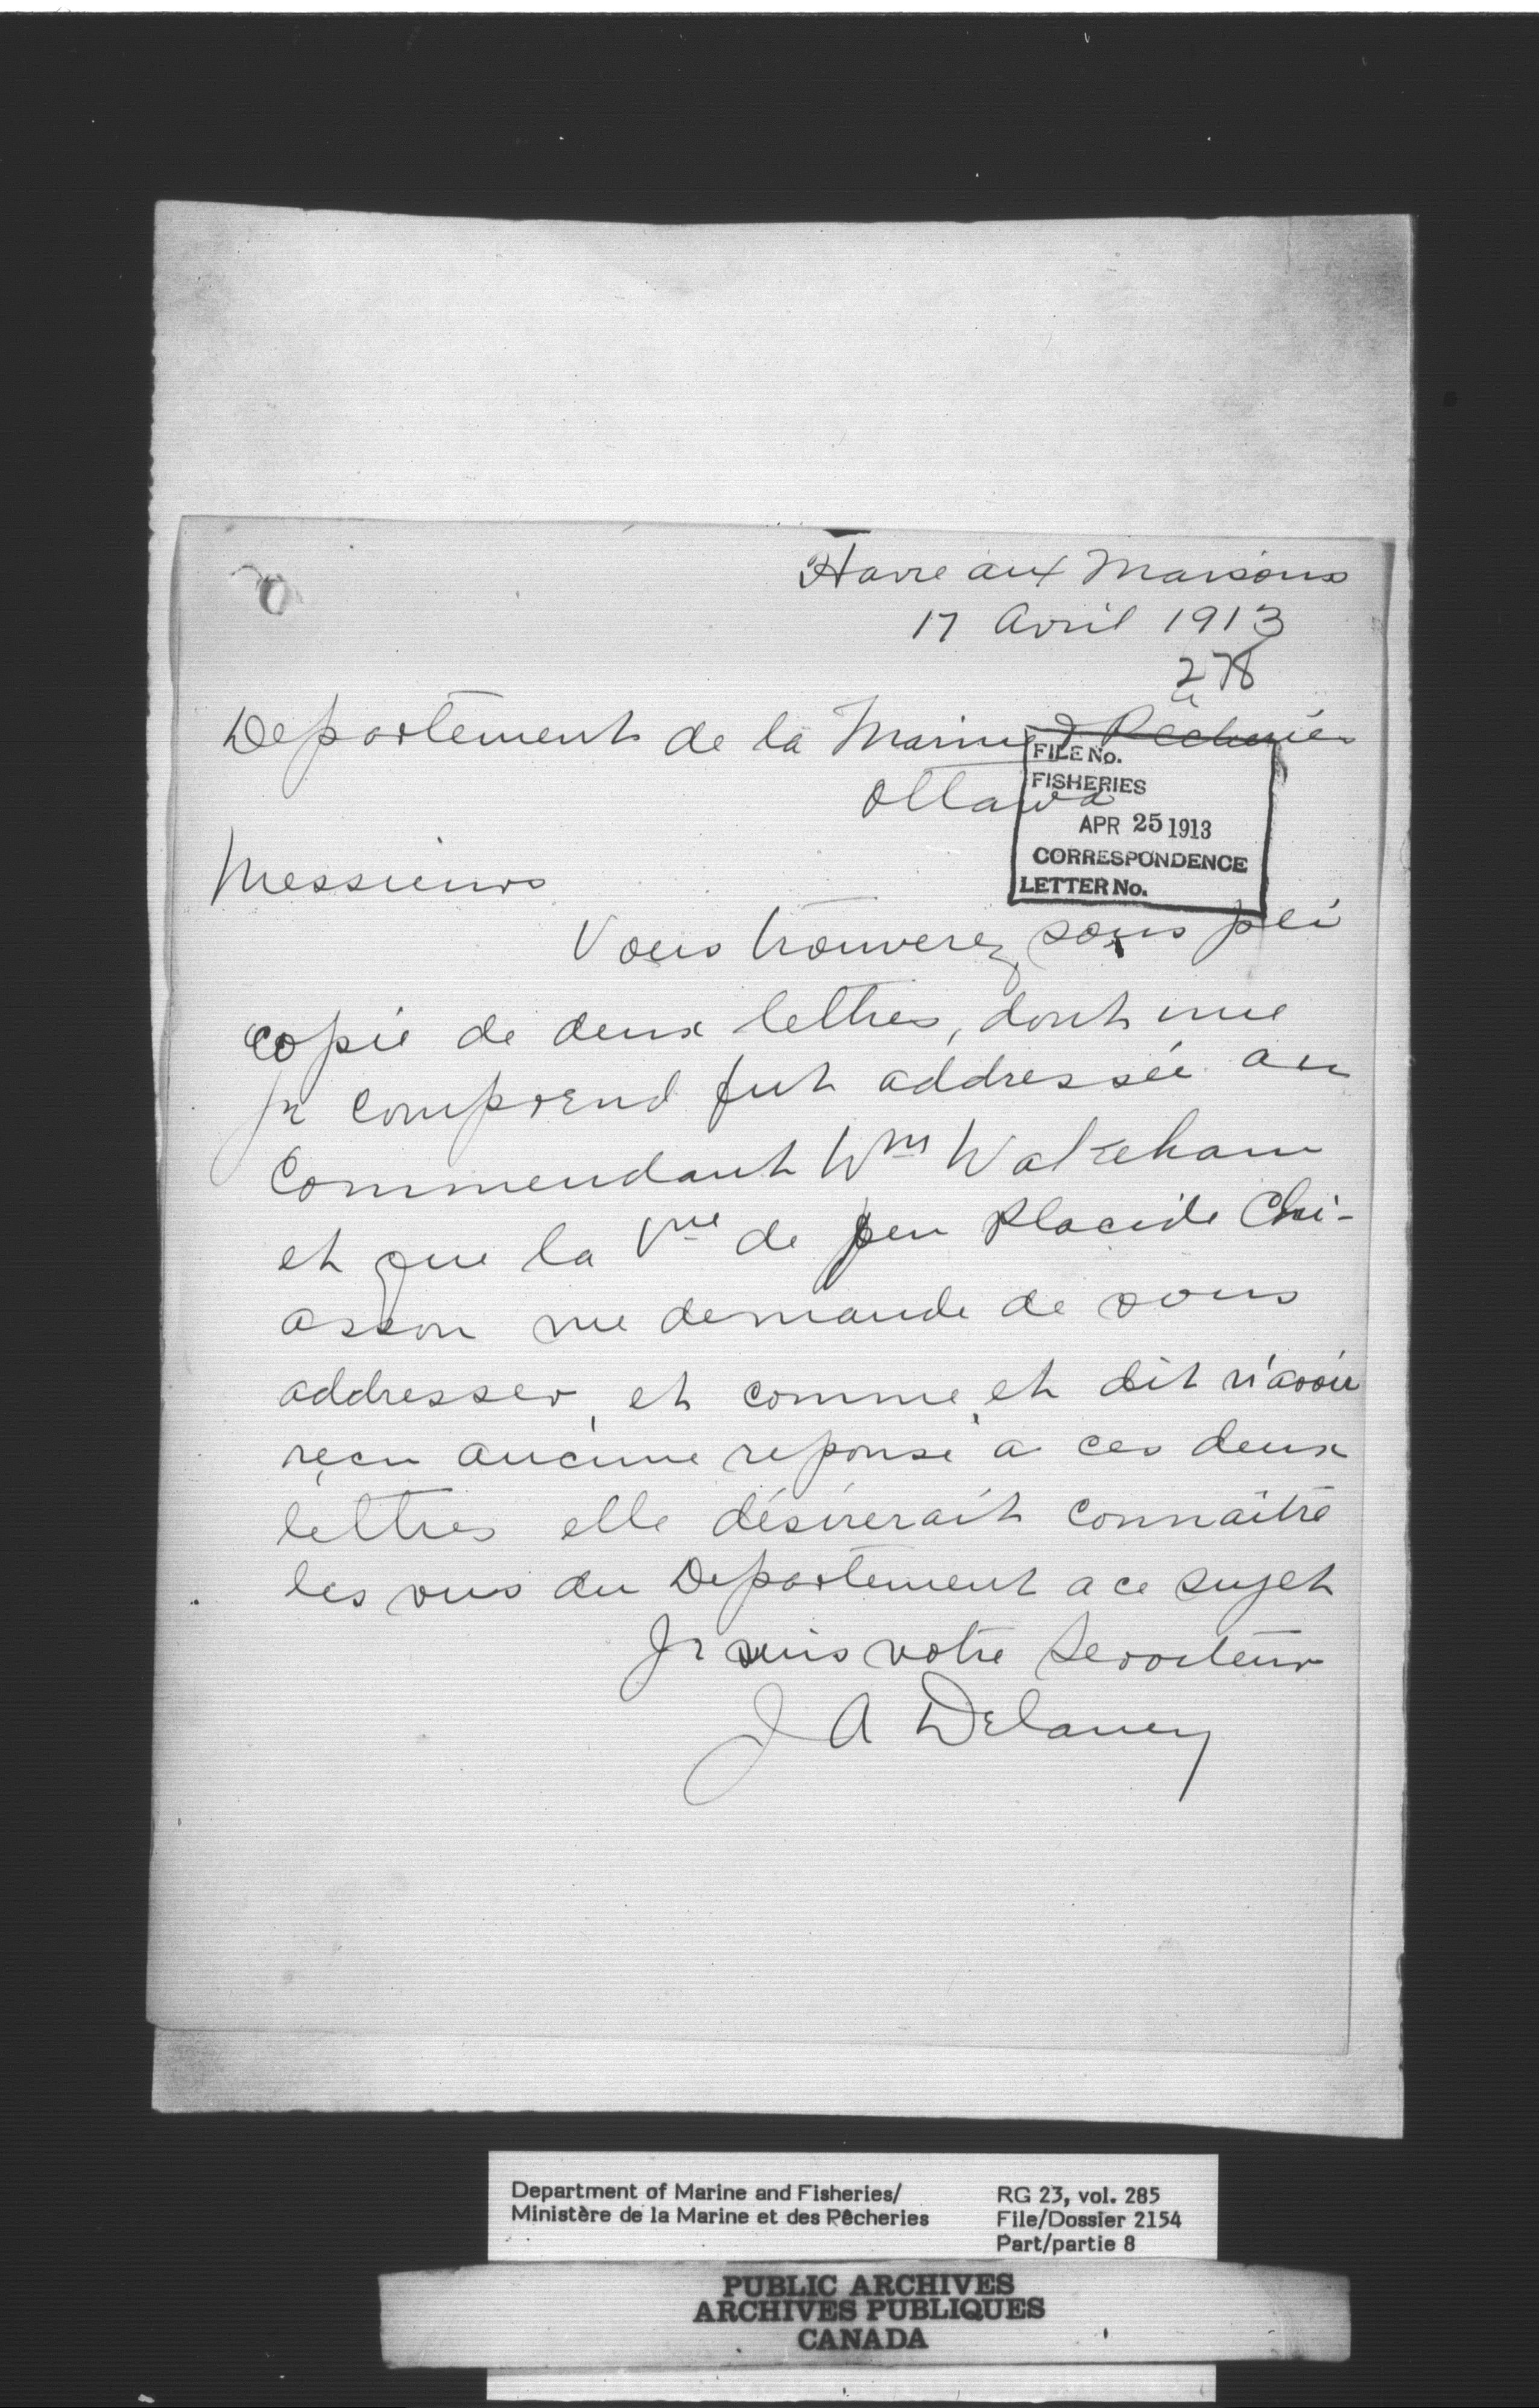 Havre aux Maisons
17 Avril 1913
278
Departement de la Marine & Pêcheries
Ottawa
FILE No.
FISHERIES
APR 25 1913
CORRESPONDENCE
LETTER No.
Messieurs
Vous trouverez sous pli
copie de deux lettres, dont une
je comprend fut addressée au
Commendant Wm Wakeham
et que la Vve de feu Placide Chi-
asson me demande de vous
addresser, et comme, et dit n'avoir
reçu aucune reponse a ces deux
lettres elle désirerait connaître
les vus du Departement a ce sujet
Je suis votre Serviteur
J A Delaney
Department of Marine and Fisheries/
Ministère de la Marine et des Pêcheries
RG 23, vol. 285
File/Dossier 2154
Part/partie 8
PUBLIC ARCHIVES
ARCHIVES PUBLIQUES
CANADA